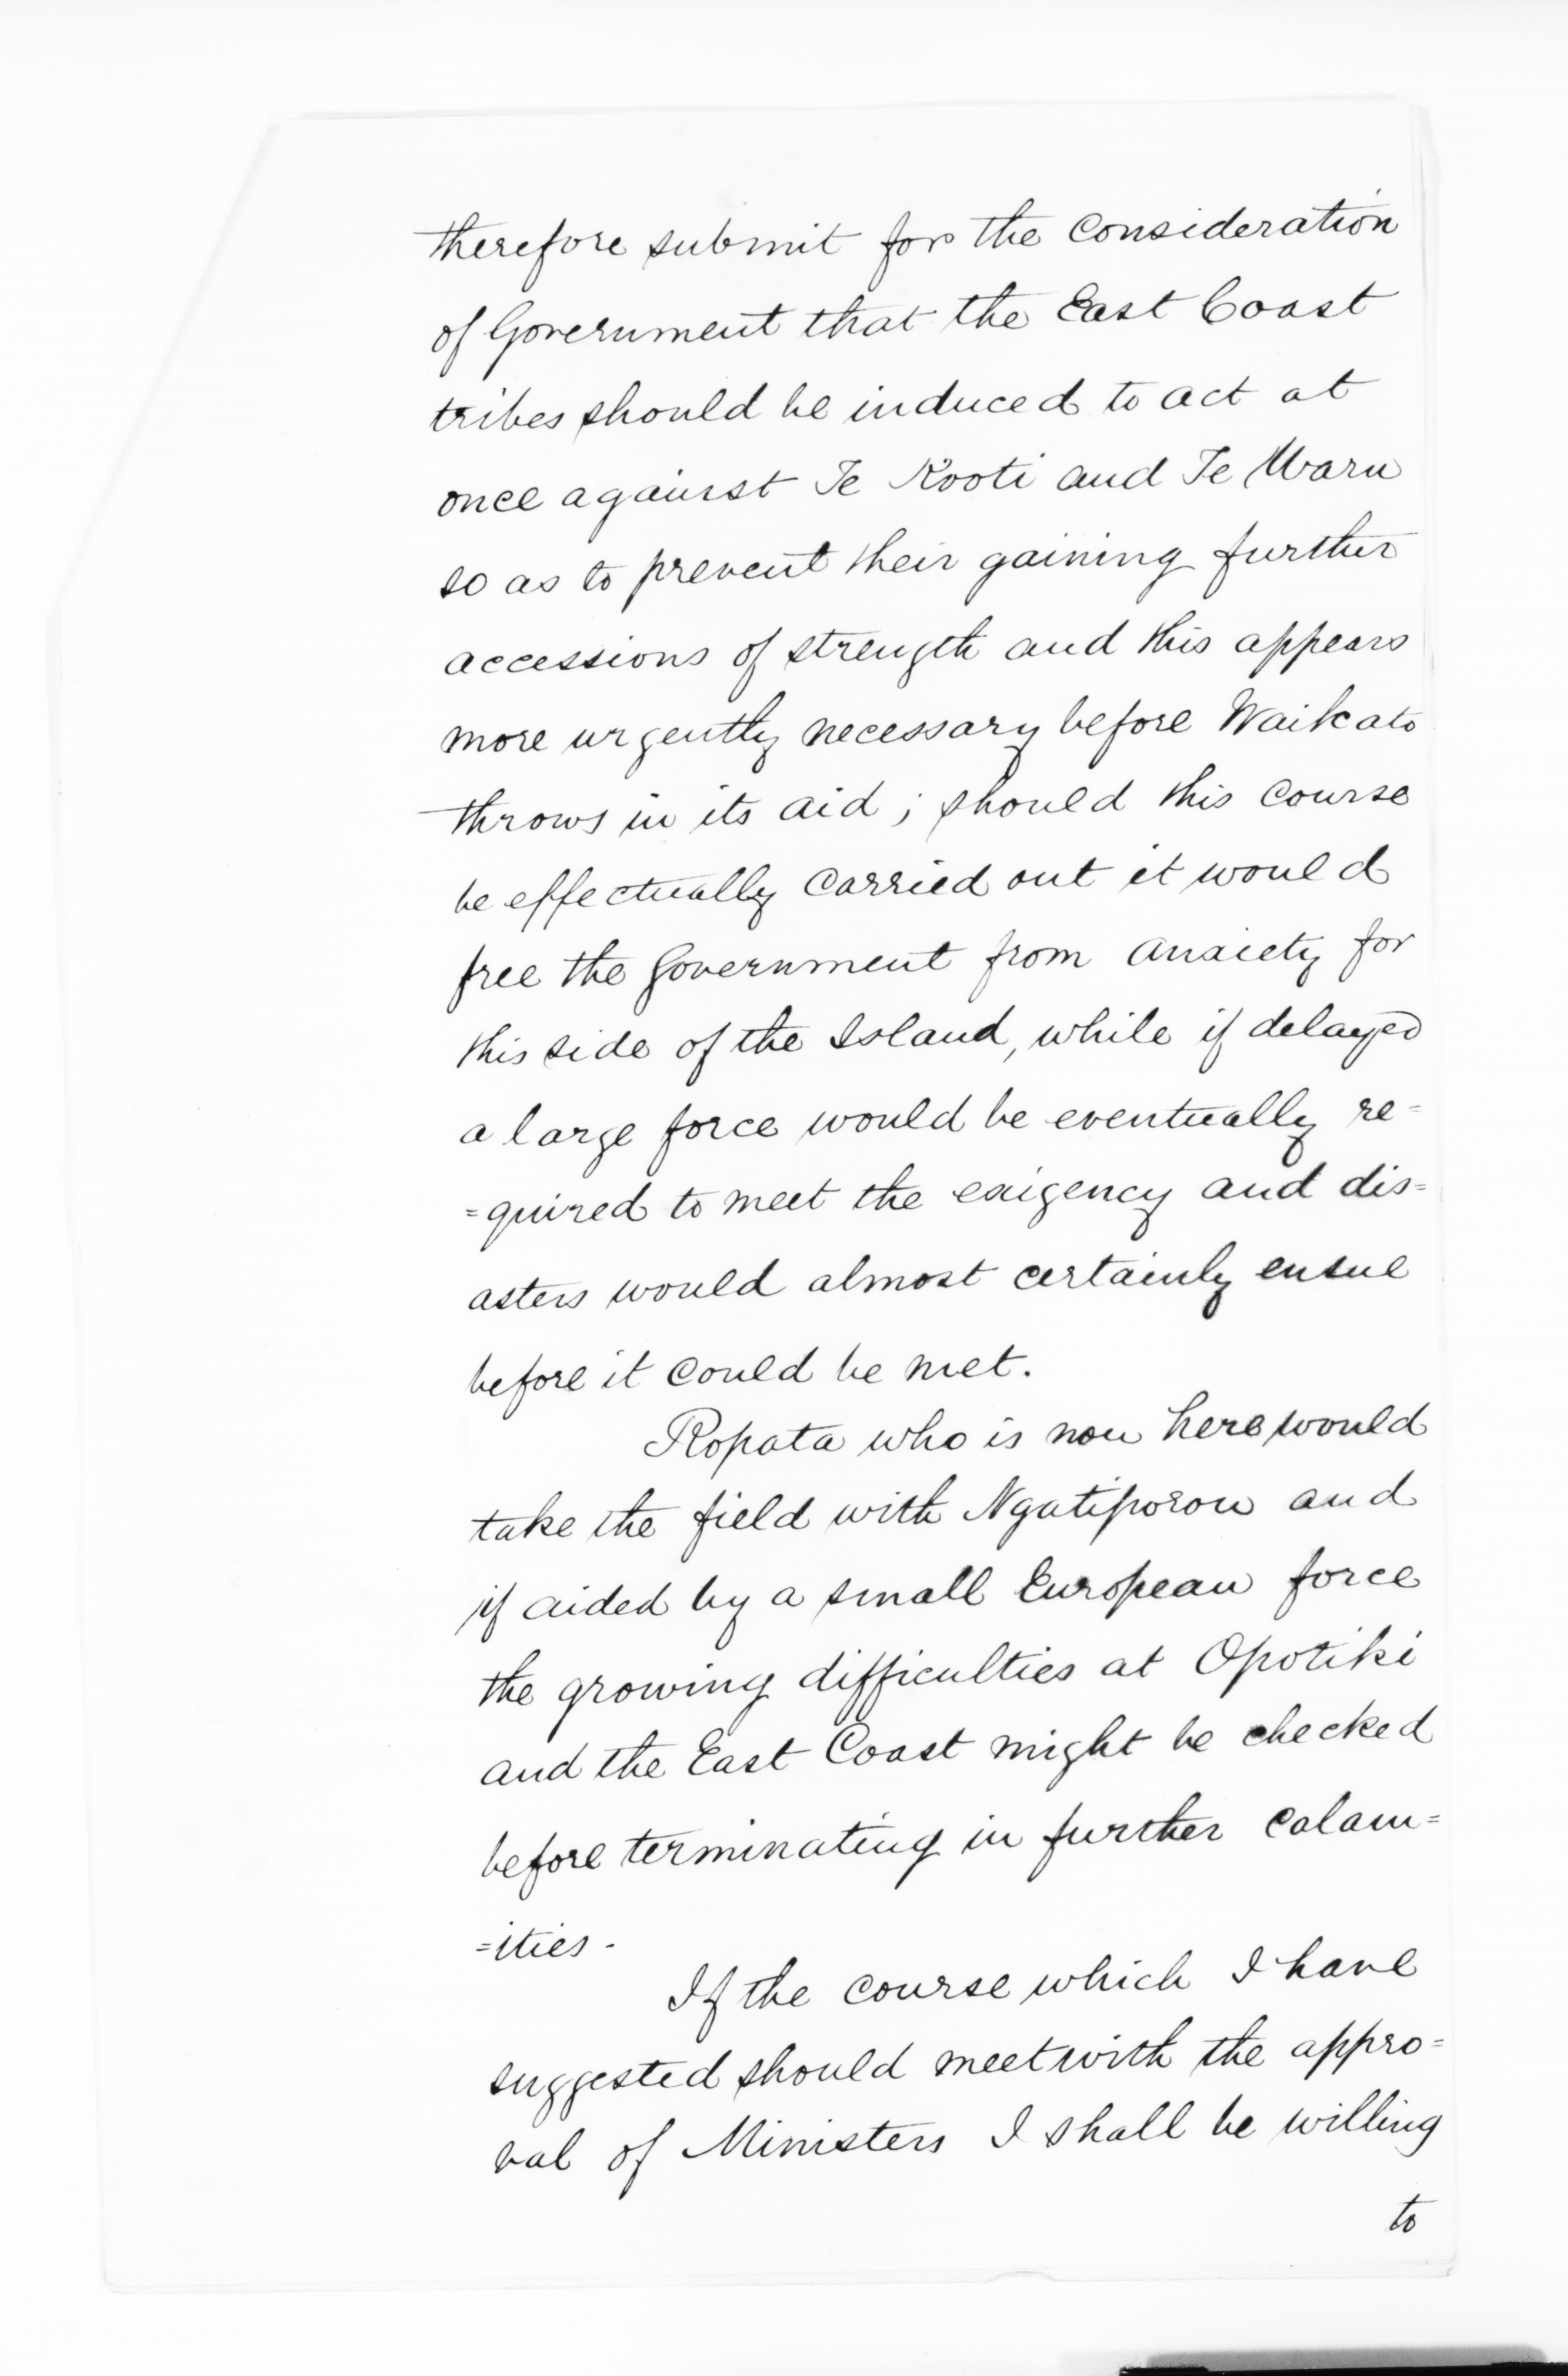 therefore submit for the Consideration
of Government that the East Coast
tribes should be induced to act at
once against Te Kooti and Te Waru
so as to prevent their gaining further
accessions of strength and this appears
more urgently necessary before Waikato
throws in its aid; should this course
be effectually carried out it would
free the Government from anxiety for
this side of the Island, while if delayed
a large force would be eventually re=
=quired to meet the exigency and dis=
asters would almost certainly ensue
before it could be met.
Ropata who is now here would
take the field with Ngatiporou and
if aided by a small European force
the growing difficulties at Opotiki
and the East Coast might be checked
before terminating in further calam=
=ities -
If the course which I have
suggested should meet with the appro=
val of Ministers I shall be willing
to